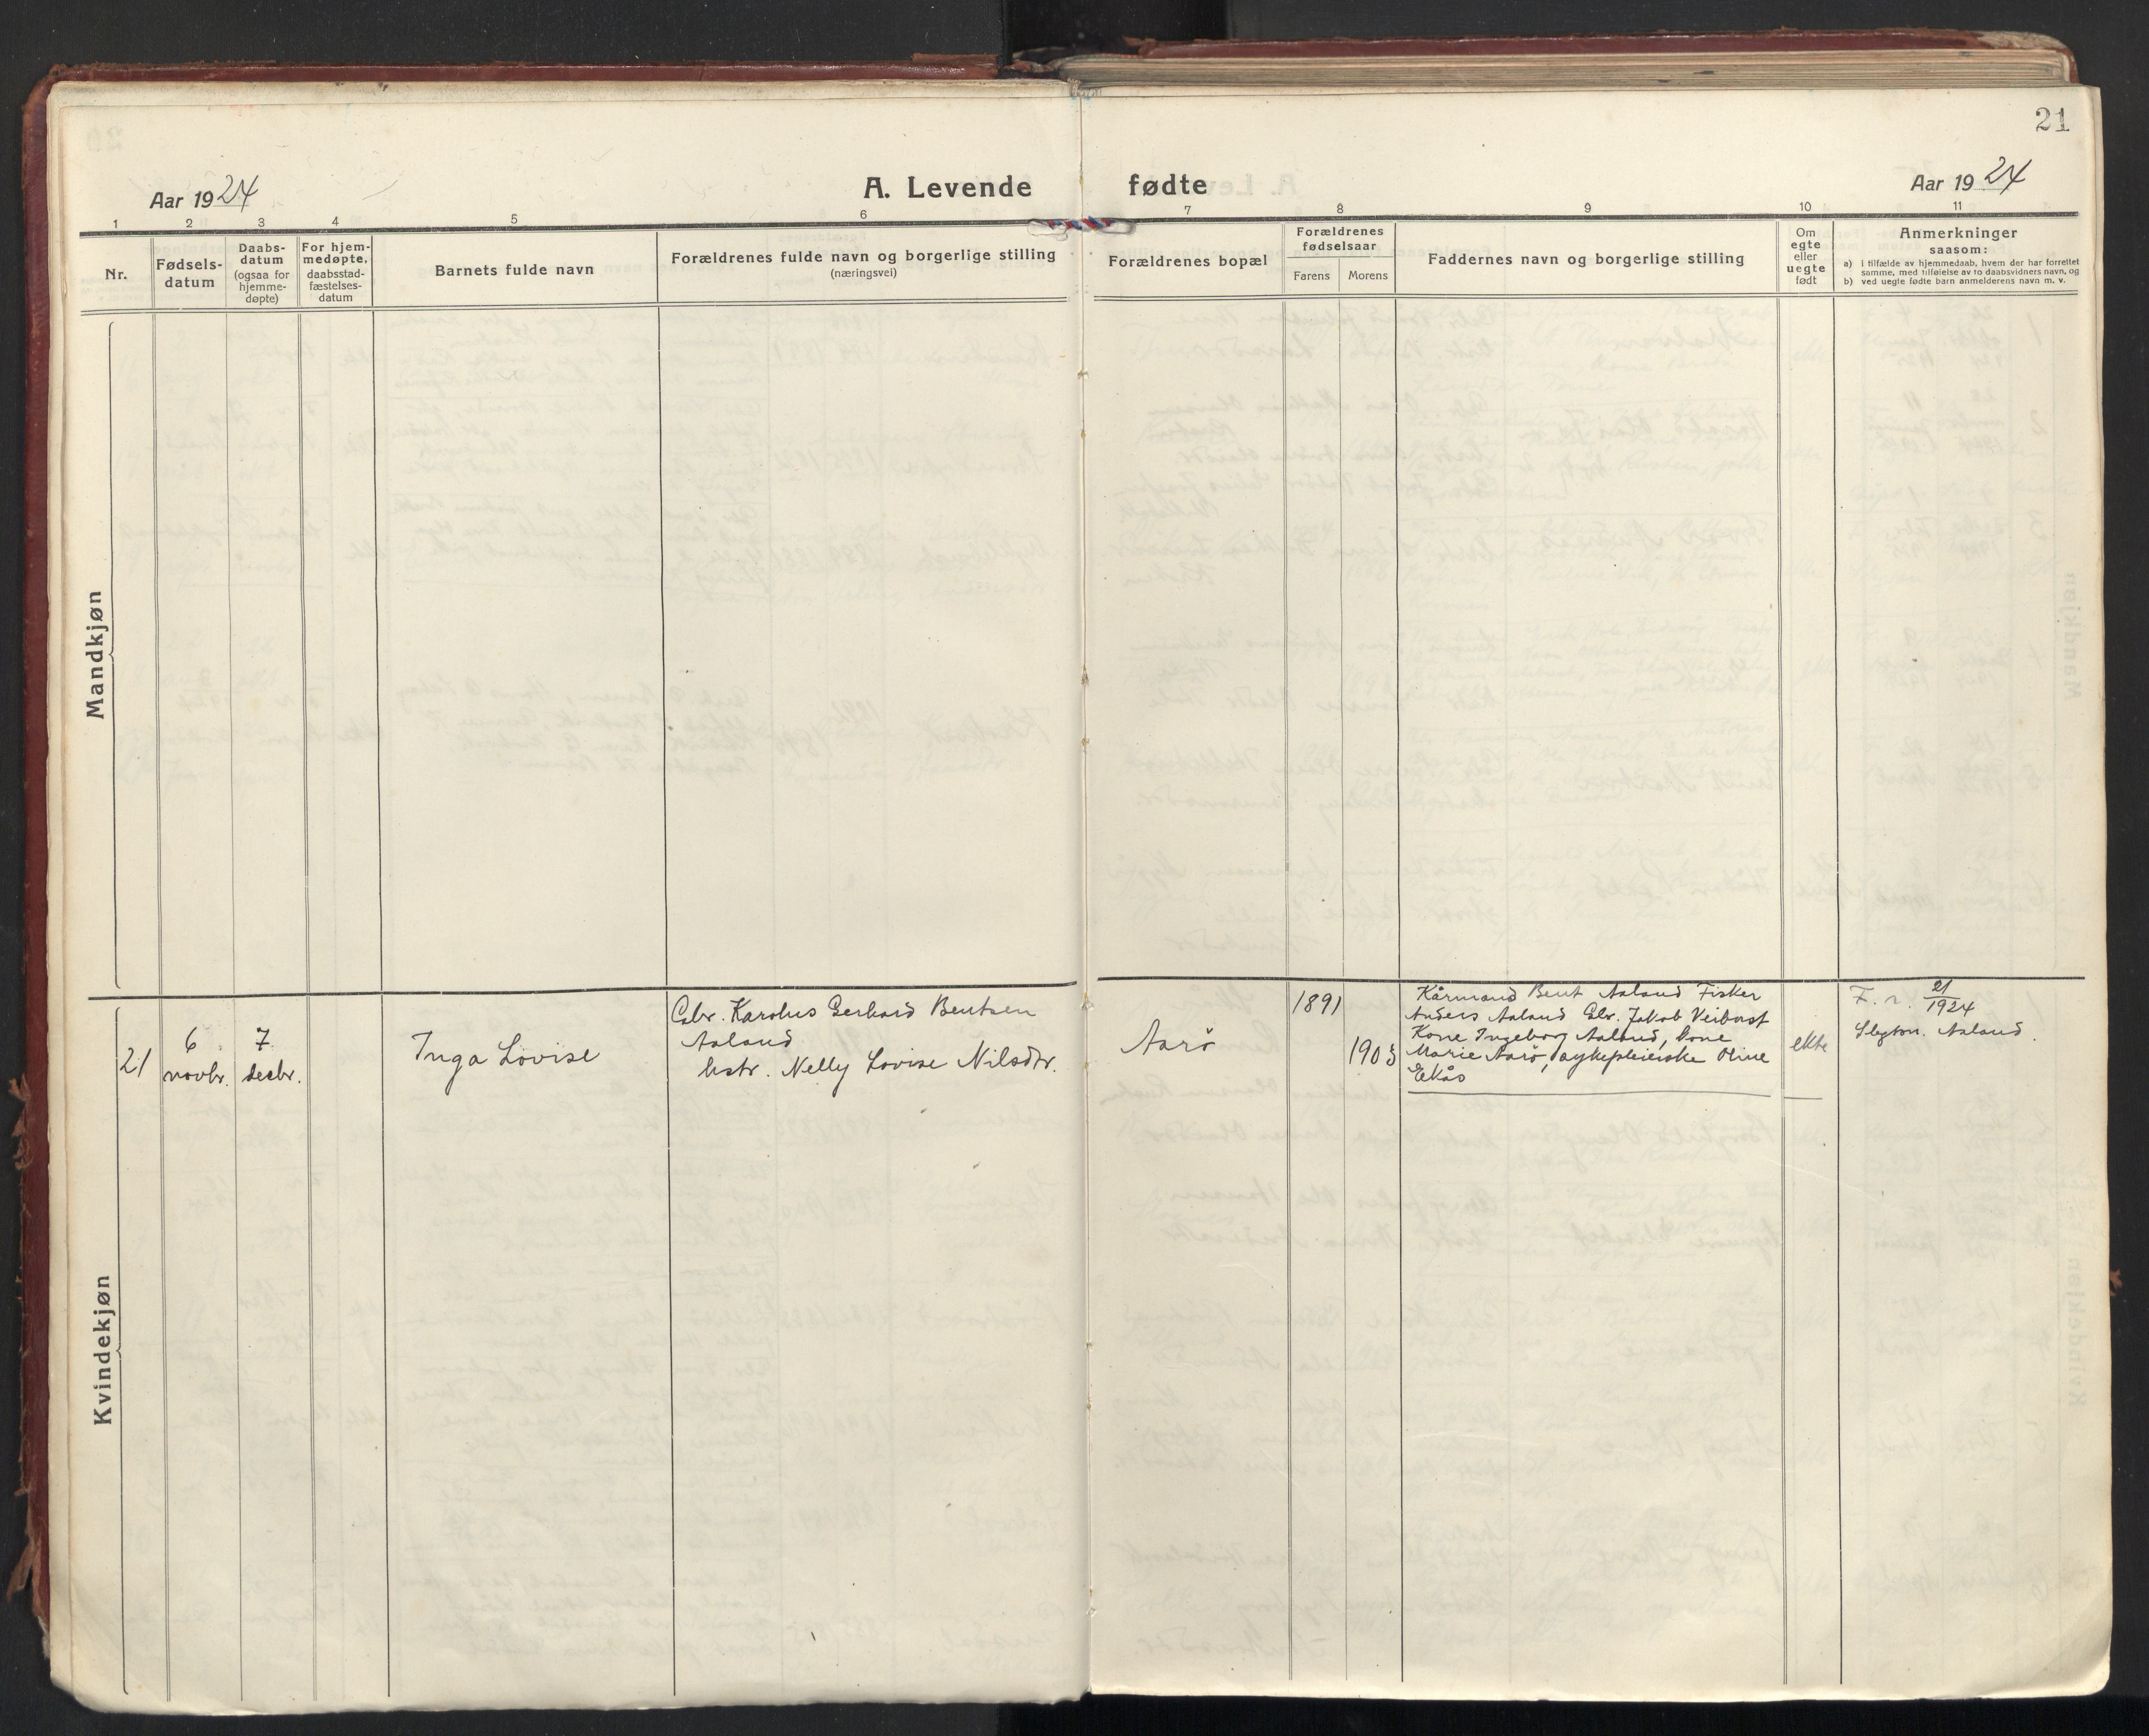 21
Aar 1924
A. Levende fødte
Aar 1924
1 2 3 4 5 6 7 8 9 10 11
Nr.
Fødsels-
datum
Daabs-
datum
(ogsaa for
hjemme-
døpte)
For hjem-
medøpte,
daabsstad-
fæstelses-
datum
Barnets fulde navn
Forældrenes fulde navn og borgerlige stilling
(næringsvei)
Forældrenes bopæl
Forældrenes
fødselsaar
Farens Morens
Faddernes navn og borgerlige stilling
Om
egte
eller
uegte
født
Anmerkninger
saasom:
a) i tilfælde av hjemmedaab, hvem der har forrettet
samme, med tilføielse av to daabsvidners navn, og
b) ved uegte fødte barn anmelderens navn m. v.
Mandkjøn
Kvindekjøn
21
6
novbr.
7
decbr.
Inga Lovise
Gbr. Karolus Gerhard Bentsen
Aaland
hstr. Nelly Lovise Nilsdtr.
Aarö
1891
1903
Kårmand Bent Aaland Fisker
Anders Aaland Gbr. Jakob
Kone Ingeborg Aaland, kone
Marie Aarö, sykepleierske Oline
Ekås
ekte
F. r. 21/1924
Aaland.